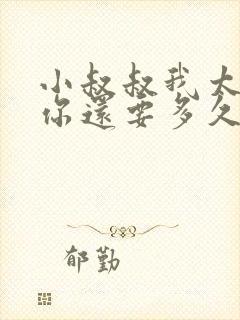 小叔叔我太
你還要多久
郁勤